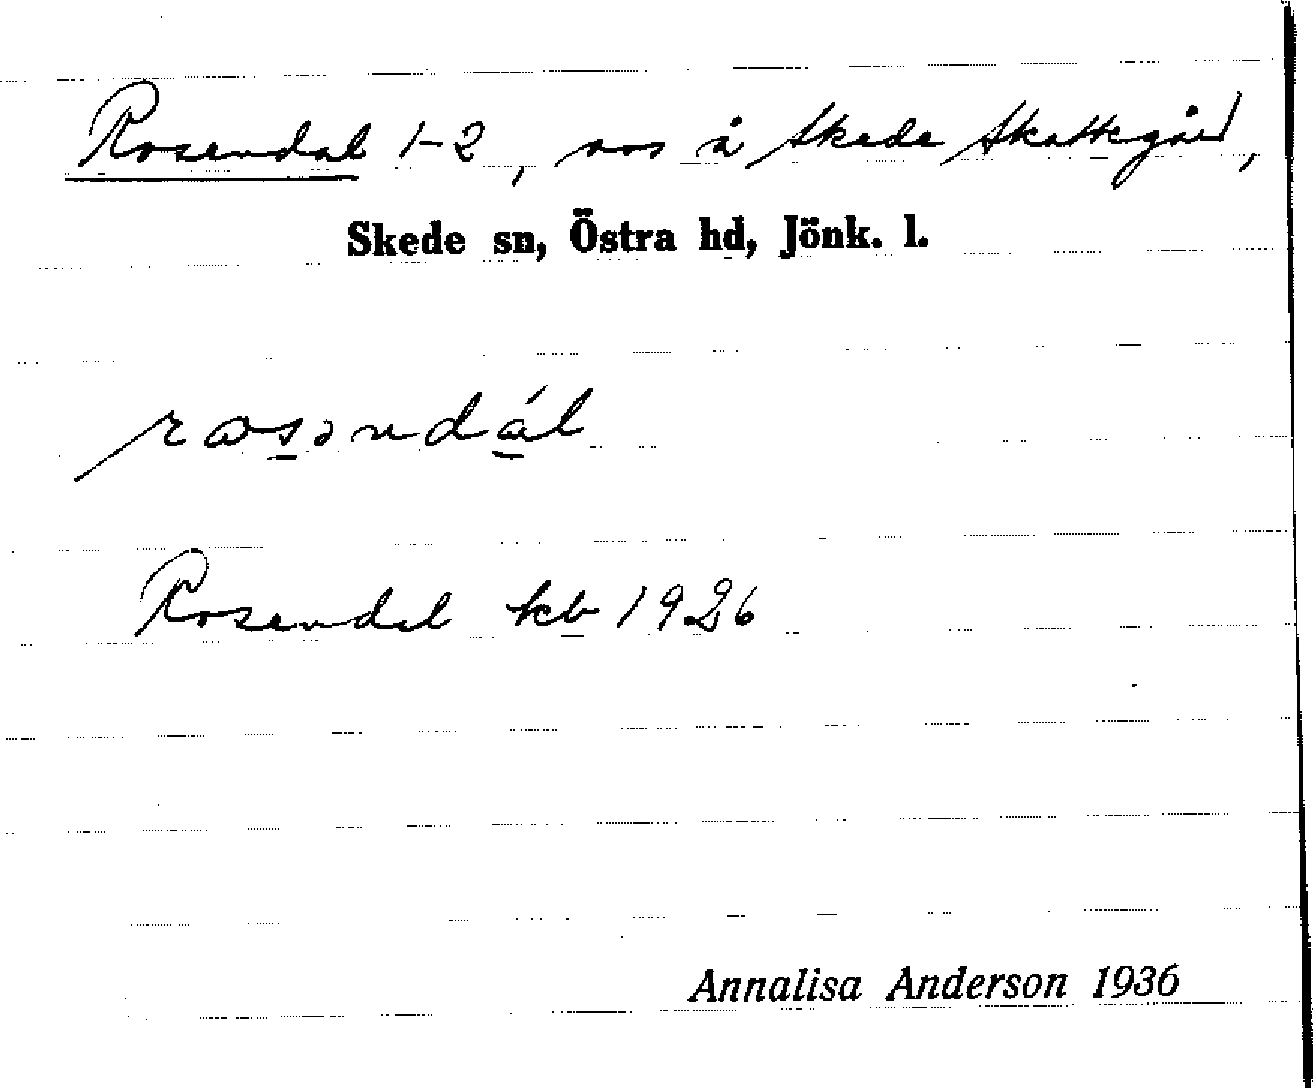 Rosendal 1-2, avs å Skede Skattegård,
Skede sn, Östra hd, Jönk. l.
rosəndál
Rosendal kb 1926
Annalisa Anderson 1936